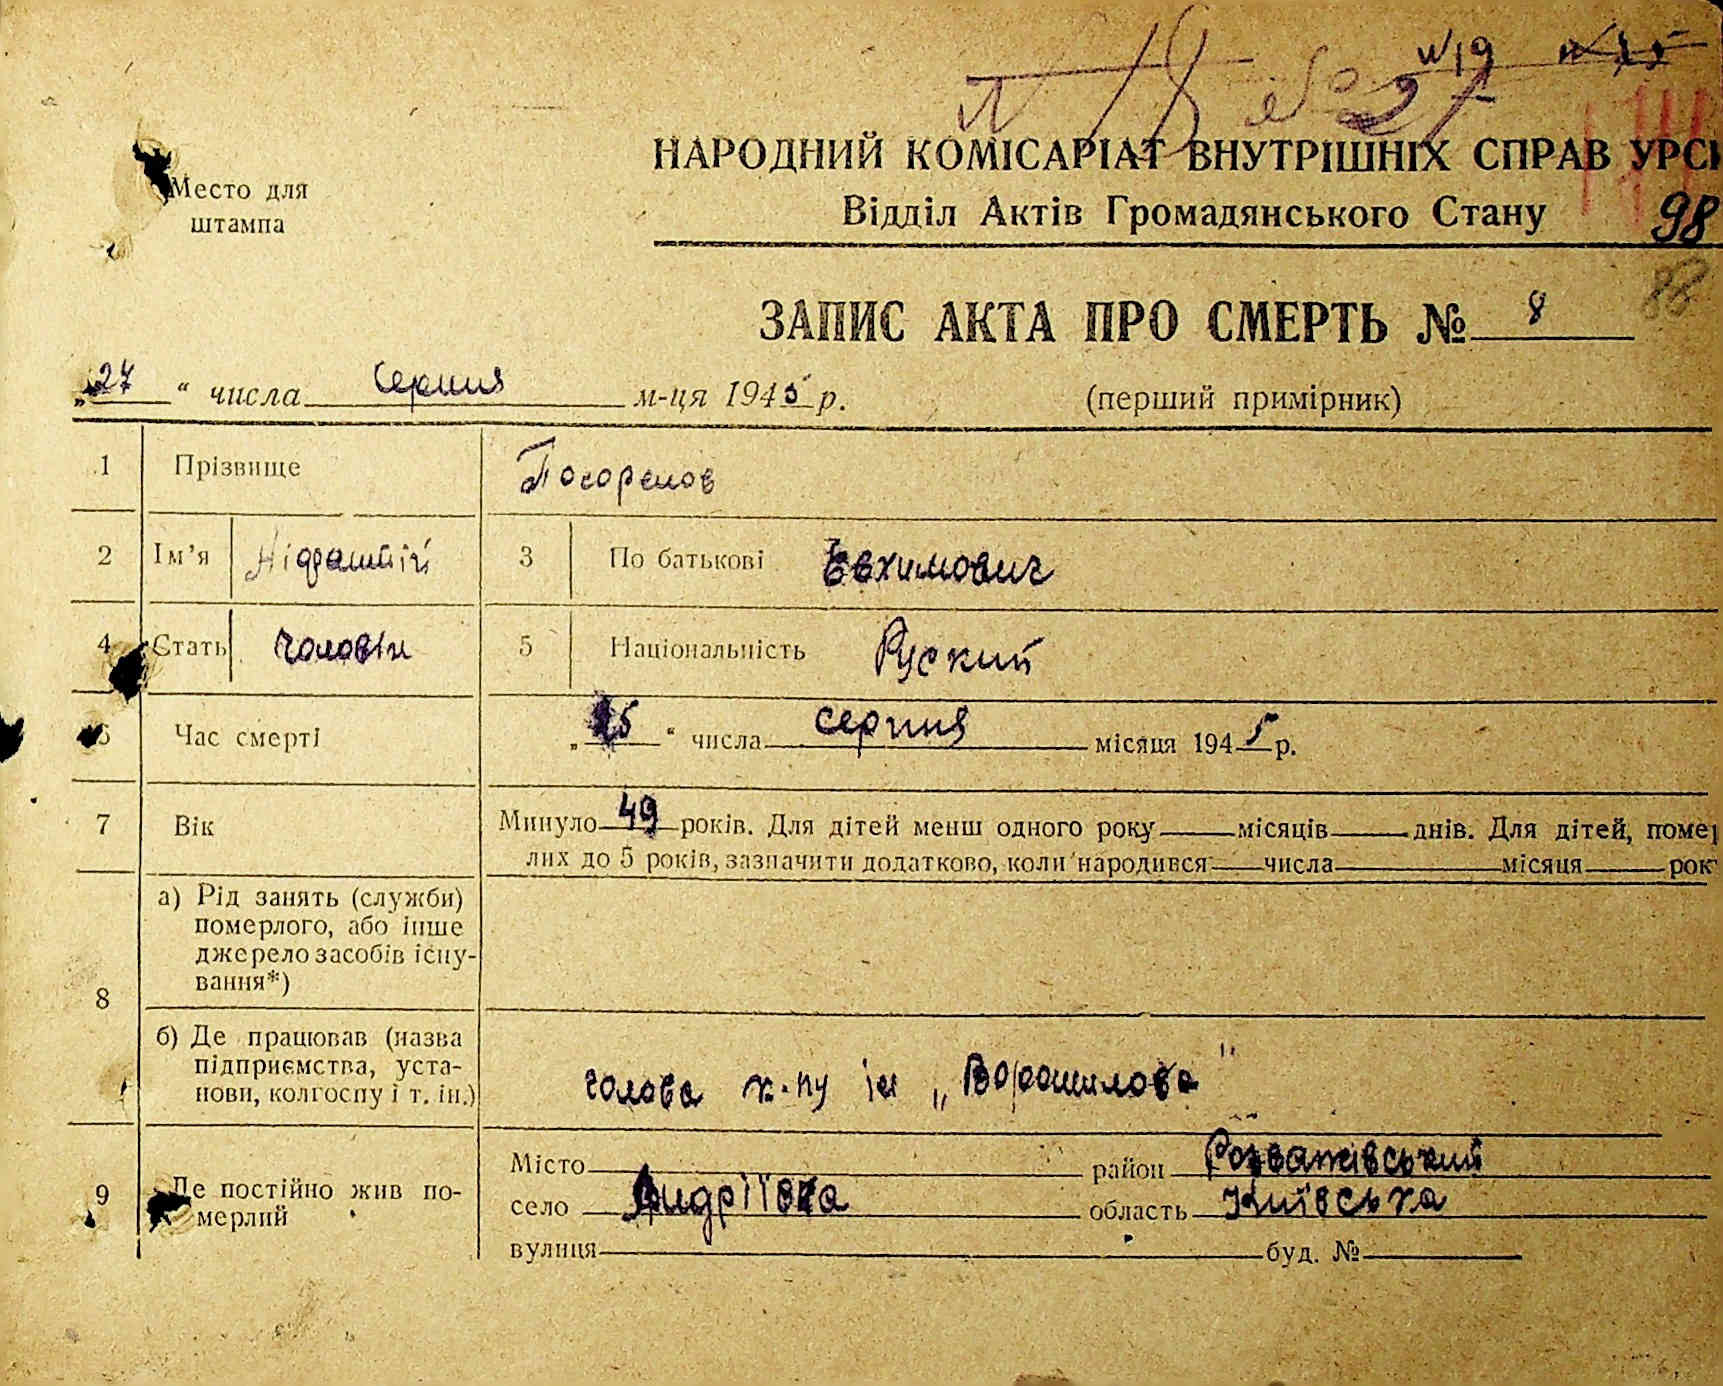 № 19
№ 27
НАРОДНИЙ КОМІСАРІАТ ВНУТРІШНІХ СПРАВ УРСР
Відділ Актів Громадянського Стану
98
88
Место для
штампа
ЗАПИС АКТА ПРО СМЕРТЬ № 8
„27“ числа серпня м-ця 1945 р. (перший примірник)
1 Прізвище Погорєлов
2 Ім’я 3 По батькові Евхимович
4 Стать чоловік 5 Національність Руский
6 Час смерті „25“ числа серпня місяця 1945 р.
7 Вік Минуло 49 років. Для дітей менш одного року місяців днів. Для дітей, помер
лих до 5 років, зазначити додатково, коли народився числа місяця рок
8 а) Рід занять (служби)
померлого, або інше
джерело засобів існу-
вання*)
б) Де працював (назва
підприємства, уста-
нови, колгоспу і т. ін.) голова к-пу ім „Ворошилова"
9 Де постійно жив по-
мерлий
Місто район Розважівський
село Андріївка область Київська
вулиця буд. №